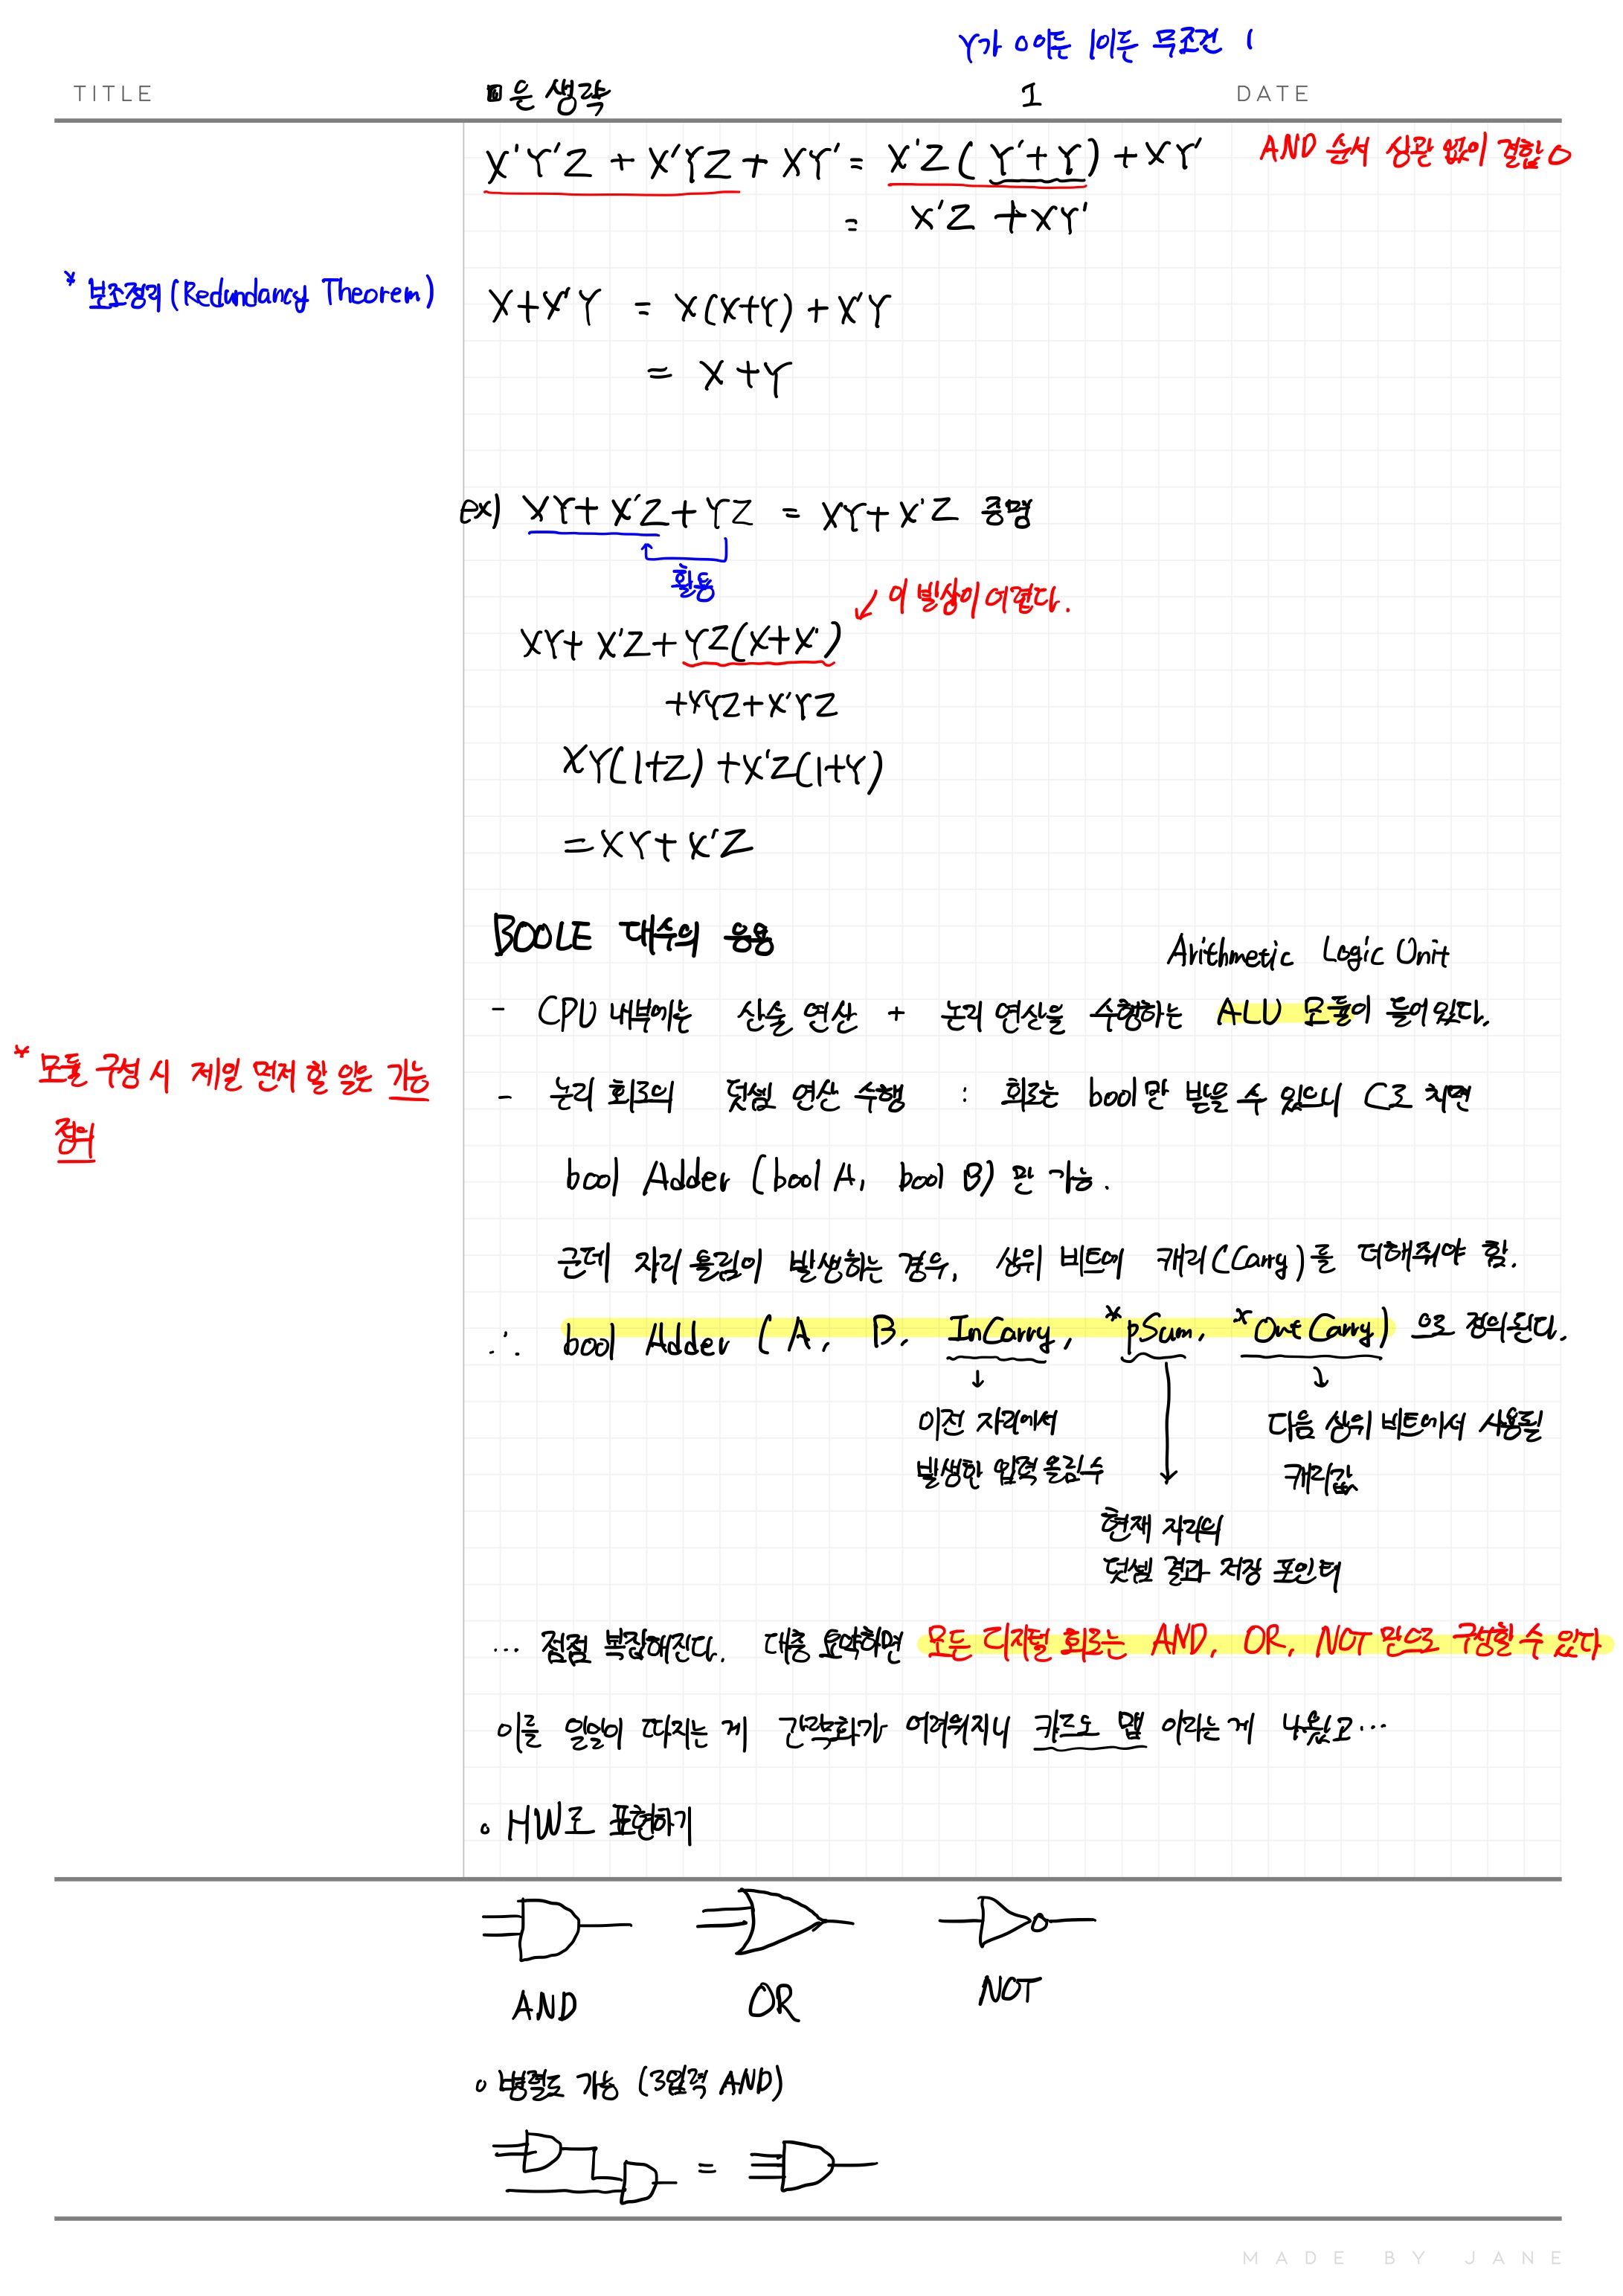 Y가 0이든 1이든 무조건 1
TITLE
▣은 생략
1
DATE
X'Y'Z + X'YZ + XY' = X'Z ( Y'+Y ) + XY'
AND 순서 상관 없이 결합 O
= X'Z + XY'
* 보조정리 (Redundancy Theorem)
X+X'Y = X(X+Y) + X'Y
= X+Y
ex) XY+ X'Z + YZ = XY+X'Z 증명
활용
이 발상이 어렵다.
XY+ X'Z + YZ(X+X')
+XYZ+X'YZ
XY(1+Z) +X'Z(1+Y)
=XY+X'Z
BOOLE 대수의 응용
Arithmetic Logic Unit
- CPU 내부에는 산술 연산 + 논리 연산을 수행하는 ALU 모듈이 들어있다.
* 모듈 구성 시 제일 먼저 할 일은 기능
정의
- 논리 회로의 덧셈 연산 수행 : 회로는 bool만 받을 수 있으니 C로 치면
bool Adder (bool A, bool B) 만 가능.
근데 자리 올림이 발생하는 경우, 상위 비트에 캐리(Carry)를 더해줘야 함.
∴ bool Adder ( A, B, InCarry, *pSum, *OutCarry) 으로 정의된다.
↓
↓
이전 자리에서
발생한 입력 올림수
다음 상위 비트에서 사용될
캐리값
현재 자리의
덧셈 결과 저장 포인터
... 점점 복잡해진다. 대충 요약하면 모든 디지털 회로는 AND, OR, NOT 만으로 구성할 수 있다
이를 일일이 따지는 게 간략화가 어려워지니 카르노 맵 이라는 게 나왔고...
o HW로 표현하기
AND
OR
NOT
o 병렬도 가능 (3입력 AND)
=
MADE BY JANE